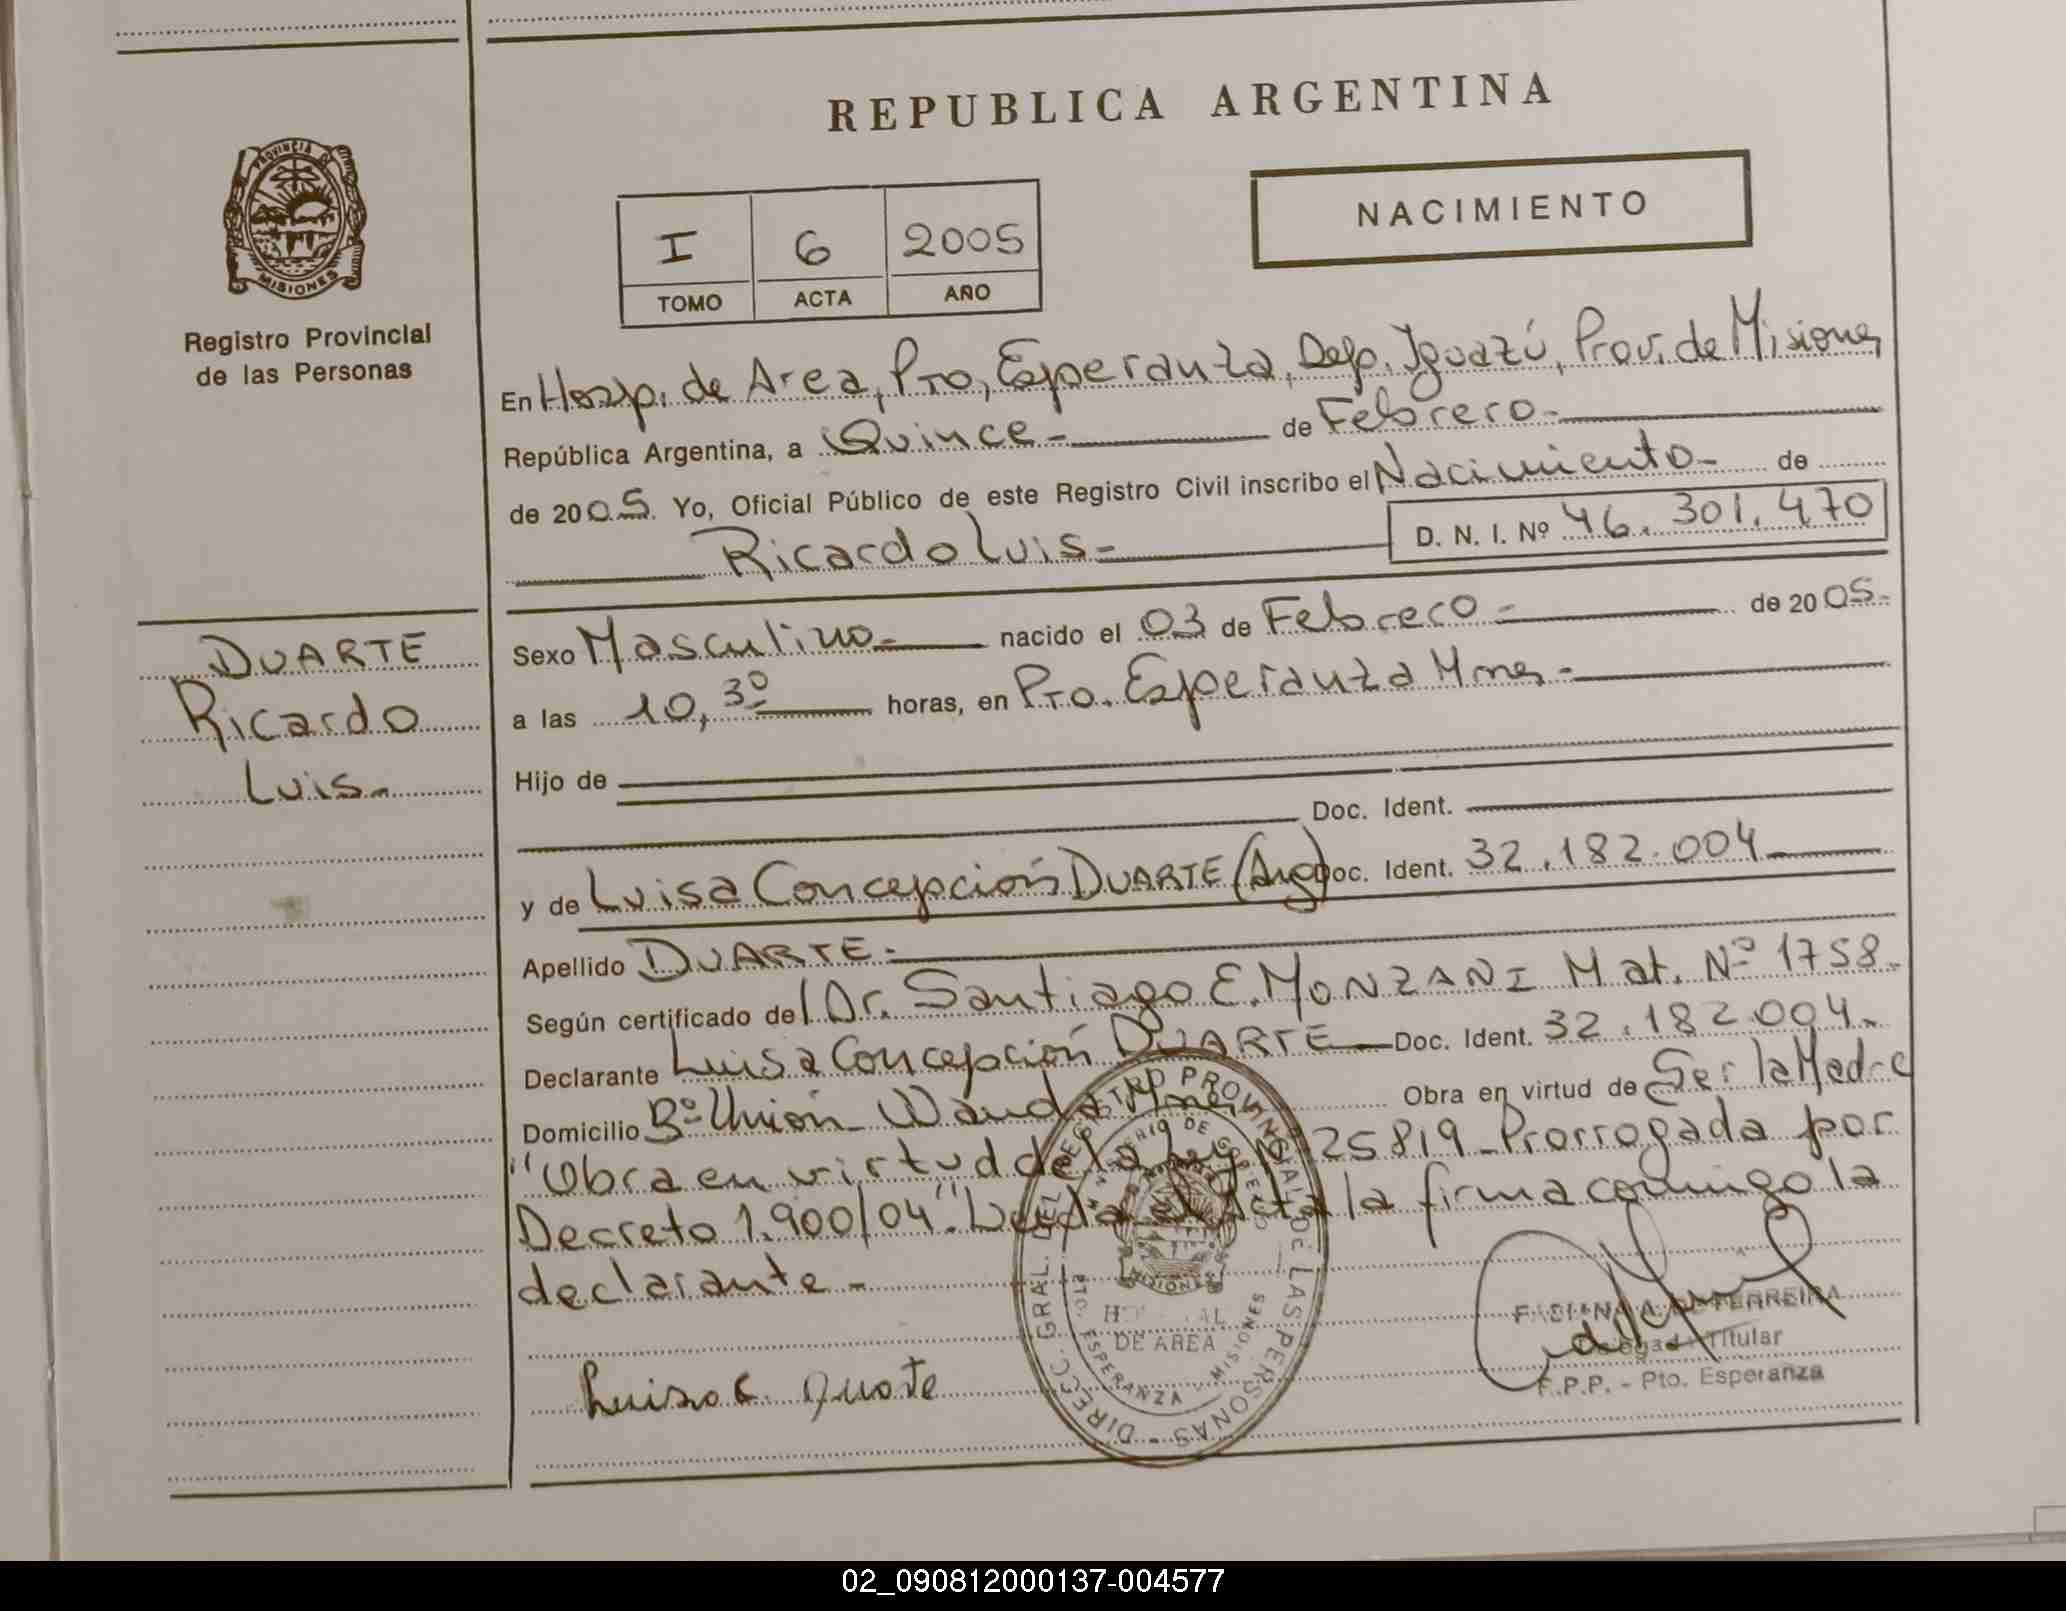 REPUBLICA ARGENTINA
PROVINCIA DE
MISIONES
Registro Provincial
de las Personas
NACIMIENTO
I 6 2005
TOMO ACTA AÑO
En Hosp. de Area, Pto, Esperanza, Dep. Iguazú, Prov. de Misiones
República Argentina, a Quince - de Febrero -
de 2005. Yo, Oficial Público de este Registro Civil inscribo el Nacimiento - de
Ricardo Luis - D. N. I. Nº 46.301.470
DUARTE
Ricardo
Luis -
Sexo Masculino - nacido el 03 de Febrero - de 2005 -
a las 10,30 horas, en Pto. Esperanza Mnes -
Hijo de
Doc. Ident.
y de Luisa Concepción DUARTE (Arg) Doc. Ident. 32.182.004
Apellido DUARTE -
Según certificado del Dr. Santiago E. MONZANI Mat. Nº 1758 -
Declarante Luisa Concepción DUARTE - Doc. Ident. 32.182004 -
Domicilio Bº Unión - Wanda Mnes Obra en virtud de Ser la Madre
"Obra en virtud de la Ley Nº 25819 - Prorrogada por
Decreto 1.900/04". Leida el Acta la firma conmigo la
declarante -
Luisa C. Duarte
DIRECC. GRAL. DEL REGISTRO PROVINCIAL DE LAS PERSONAS
MINISTERIO DE GOBIERNO
MISIONES
HOSPITAL
DE AREA
PTO. ESPERANZA - MISIONES
FERREIRA
Delegada Titular
Pto. Esperanza
02_090812000137-004577